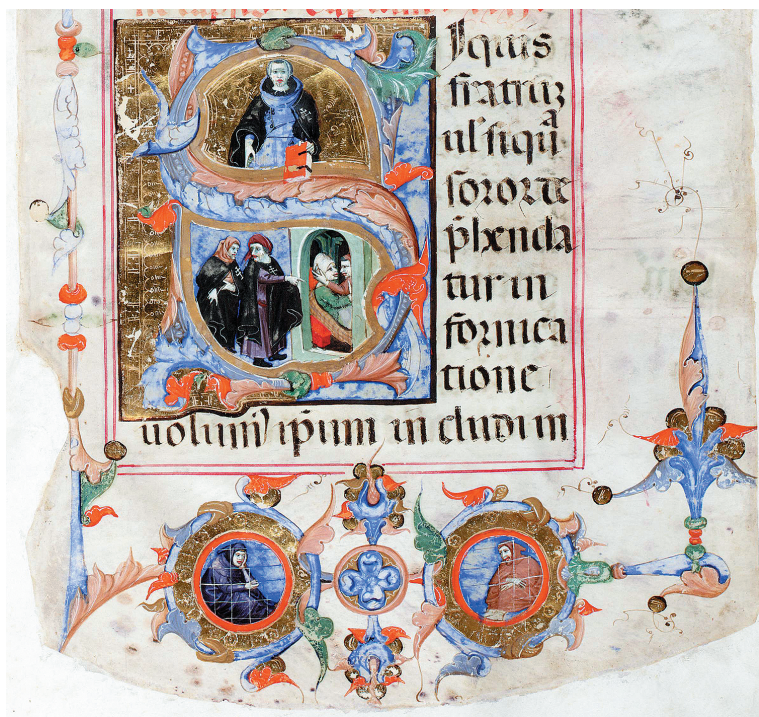 Siquis
fratruʒ
ul siqᵃ
soror de
p̄henda
tur in
fornica
tione
uolum᾿ ip̄um in cludi in